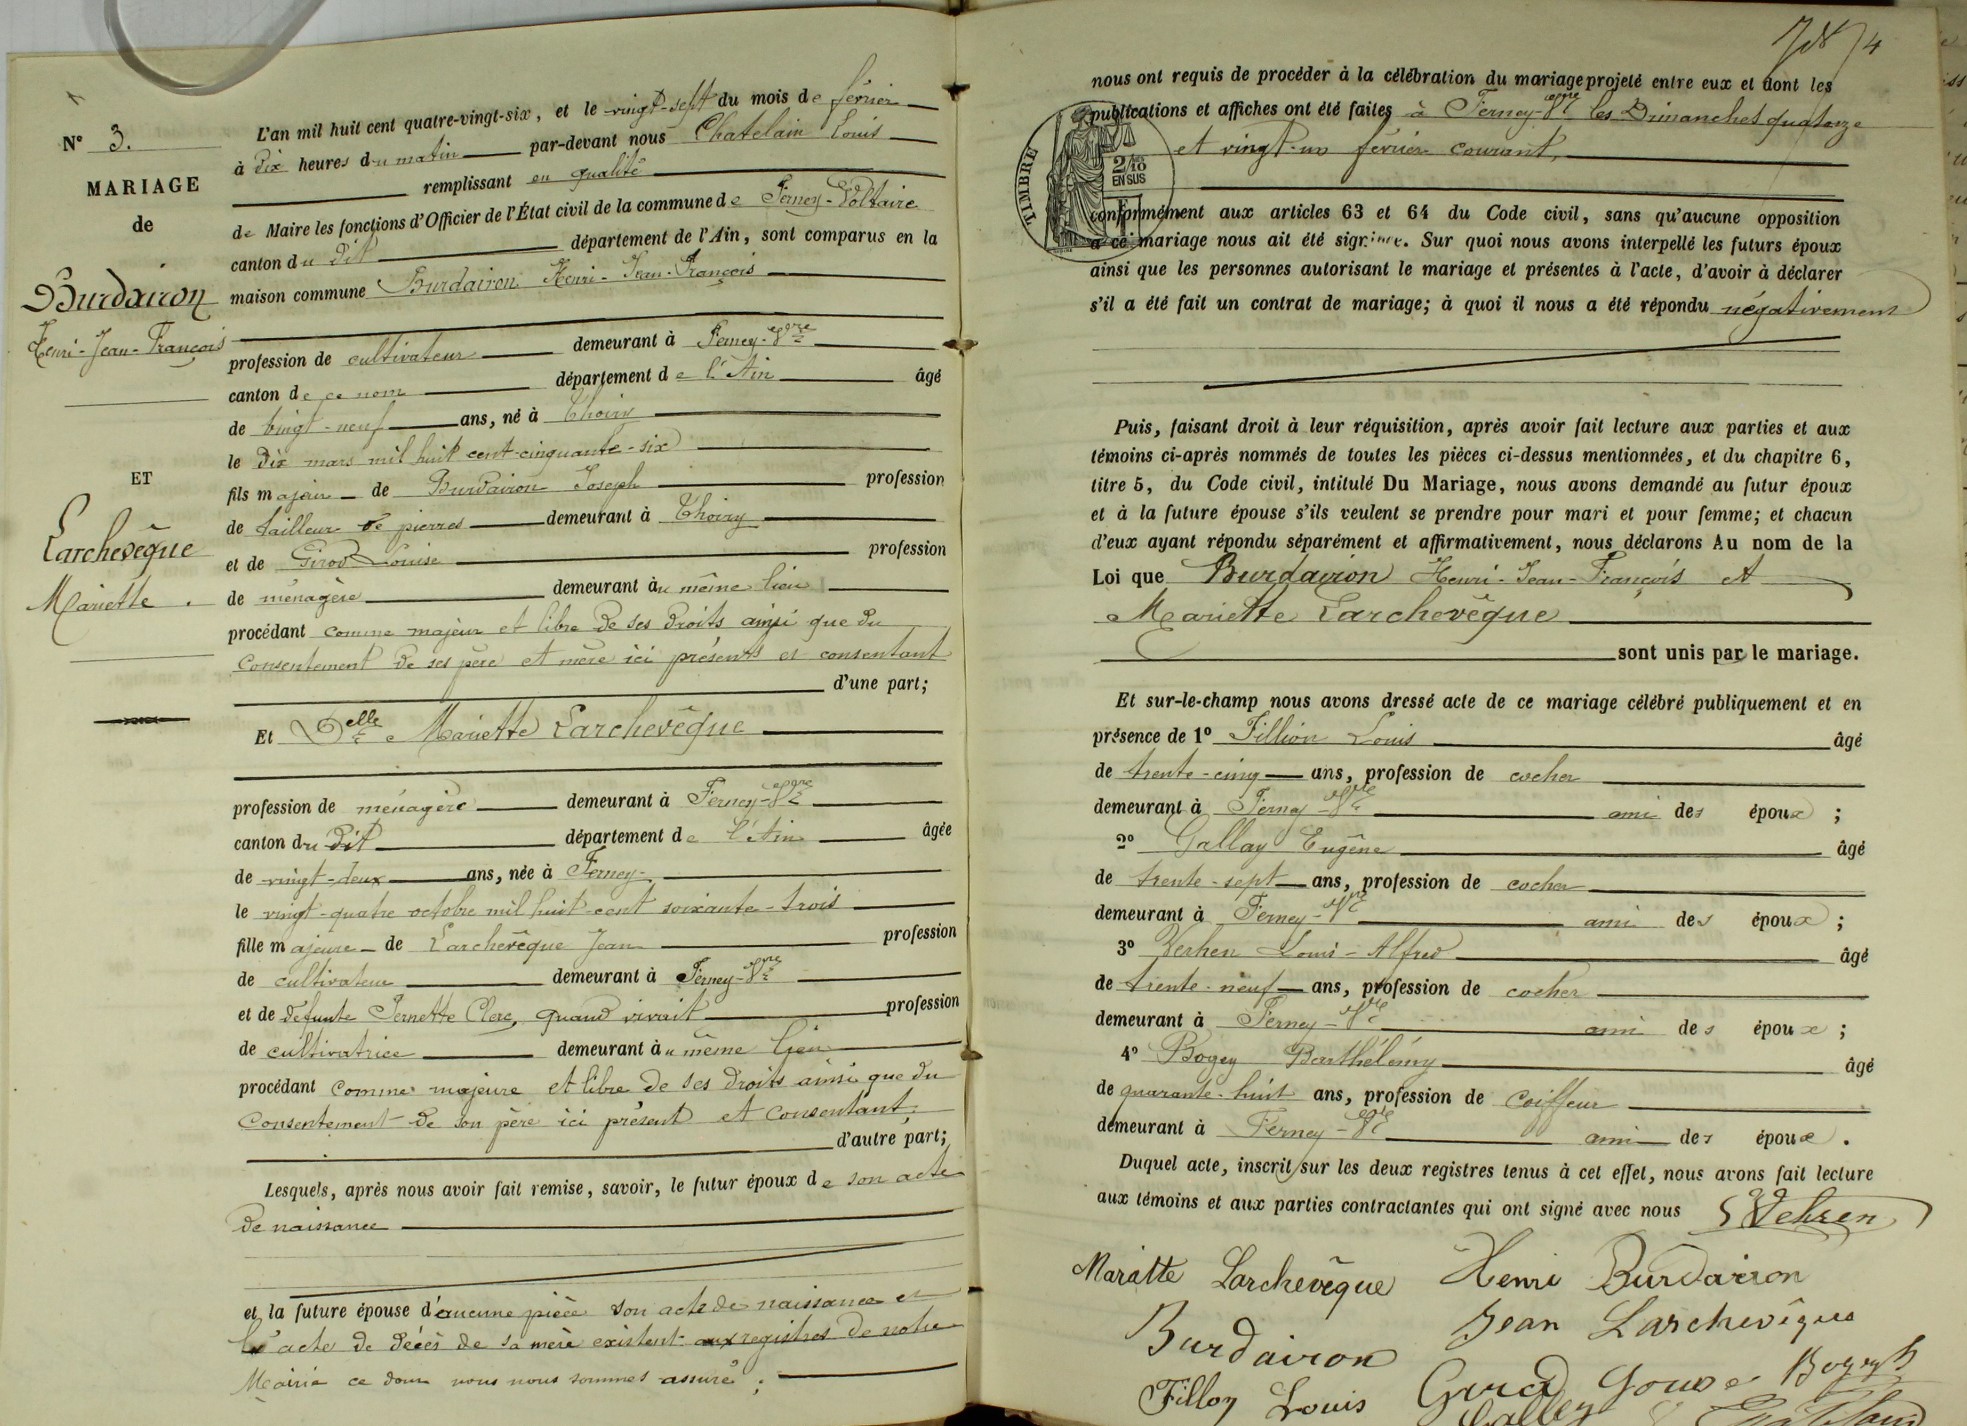 N° 3.
MARIAGE
de
Burdairon
Henri-Jean-François
ET
Larchevêque
Mariette.
L'an mil huit cent quatre-vingt-six, et le vingt-sept du mois de février
à dix heures du matin par-devant nous Chatelain Louis
remplissant en qualité
de Maire les fonctions d'Officier de l'État civil de la commune de Ferney-Voltaire
canton du dit département de l'Ain, sont comparus en la
maison commune Burdairon Henri-Jean-François
profession de cultivateur demeurant à Ferney-Vre
canton de ce nom département de l'Ain âgé
de vingt-neuf ans, né à Thoiry
le dix mars mil huit cent cinquante-six
fils majeur de Burdairon Joseph profession
de tailleur de pierres demeurant à Thoiry
et de Girod Louise
de ménagère demeurant au même lieu
procédant comme majeur et libre de ses droits ainsi que du
consentement de ses père et mère ici présents et consentant
d'une part;
Et Delle Mariette Larchevêque
profession de ménagère demeurant à Ferney-Vre
canton du dit département de l'Ain âgée
de vingt-deux ans, née à Ferney-
le vingt-quatre octobre mil huit-cent soixante-trois
fille majeure de Larchevêque Jean profession
de cultivateur demeurant à Ferney-Vre
et de défunte Pernette Clerc, quand vivait profession
de cultivatrice demeurant au même lieu
procédant comme majeure et libre de ses droits ainsi que du
consentement de son père ici présent et consentant.
d'autre part;
Lesquels, après nous avoir fait remise, savoir, le futur époux de son acte
de naissance
et la future épouse d'aucune pièce son acte de naissance et
l'acte de décès de sa mère existent aux registres de notre
Mairie ce dont nous nous sommes assuré;
4
nous ont requis de procéder à la célébration du mariage projeté entre eux et dont les
publications et affiches ont été faites à Ferney-Vre les Dimanches quatorze
et vingt-un février courant,
TIMBRE
2/10
EN SUS
conformément aux articles 63 et 64 du Code civil, sans qu'aucune opposition
à ce mariage nous ait été signifiée. Sur quoi nous avons interpellé les futurs époux
ainsi que les personnes autorisant le mariage et présentes à l'acte, d'avoir à déclarer
s'il a été fait un contrat de mariage; à quoi il nous a été répondu négativement
Puis, faisant droit à leur réquisition, après avoir fait lecture aux parties et aux
témoins ci-après nommés de toutes les pièces ci-dessus mentionnées, et du chapitre 6,
titre 5, du Code civil, intitulé Du Mariage, nous avons demandé au futur époux
et à la future épouse s'ils veulent se prendre pour mari et pour femme; et chacun
d'eux ayant répondu séparément et affirmativement, nous déclarons Au nom de la
Loi que Burdairon Henri-Jean-François et
Mariette Larchevêque
sont unis par le mariage.
Et sur-le-champ nous avons dressé acte de ce mariage célébré publiquement et en
présence de 1° Fillion Louis âgé
de trente-cinq ans, profession de cocher
demeurant à Ferney-Vre ami des époux ;
2° Gallay Eugène âgé
de trente-sept ans, profession de cocher
demeurant à Ferney-Vre ami des époux ;
3° Louis-Alfred âgé
de trente-neuf ans, profession de cocher
demeurant à Ferney-Vre ami des époux ;
4° Bogey Barthélémy âgé
de quarante-huit ans, profession de coiffeur
demeurant à Ferney-Vre ami des époux.
Duquel acte, inscrit sur les deux registres tenus à cet effet, nous avons fait lecture
aux témoins et aux parties contractantes qui ont signé avec nous
Mariette Larchevêque Henri Burdairon
Burdairon Jean Larchevêque
Fillon Louis